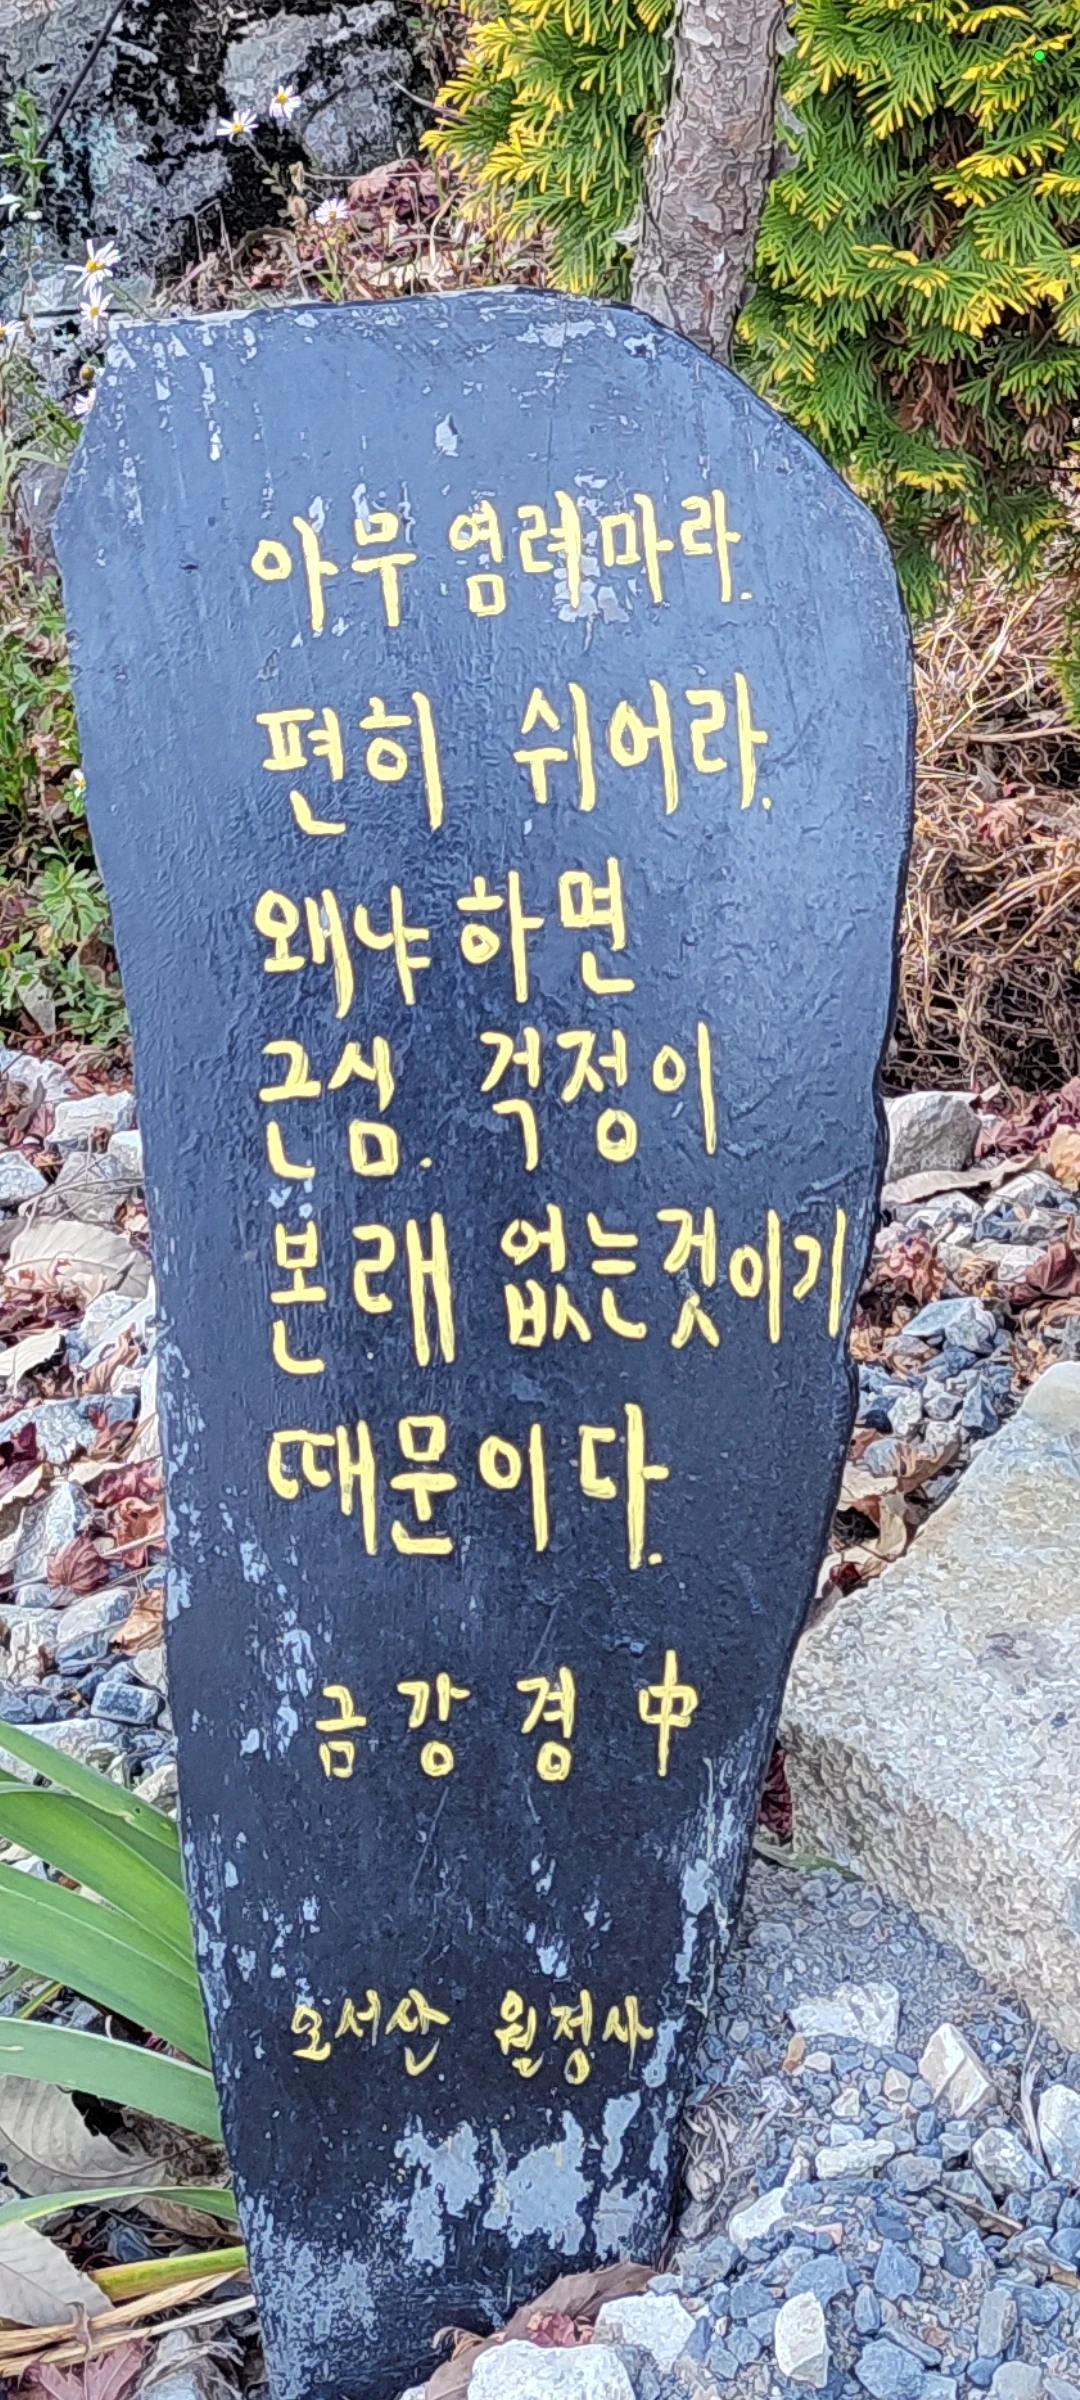 아무 염려마라.
편히 쉬어라.
왜냐하면
근심. 걱정이
본래 없는것이기
때문이다.
금강경 中
오서산 원정사